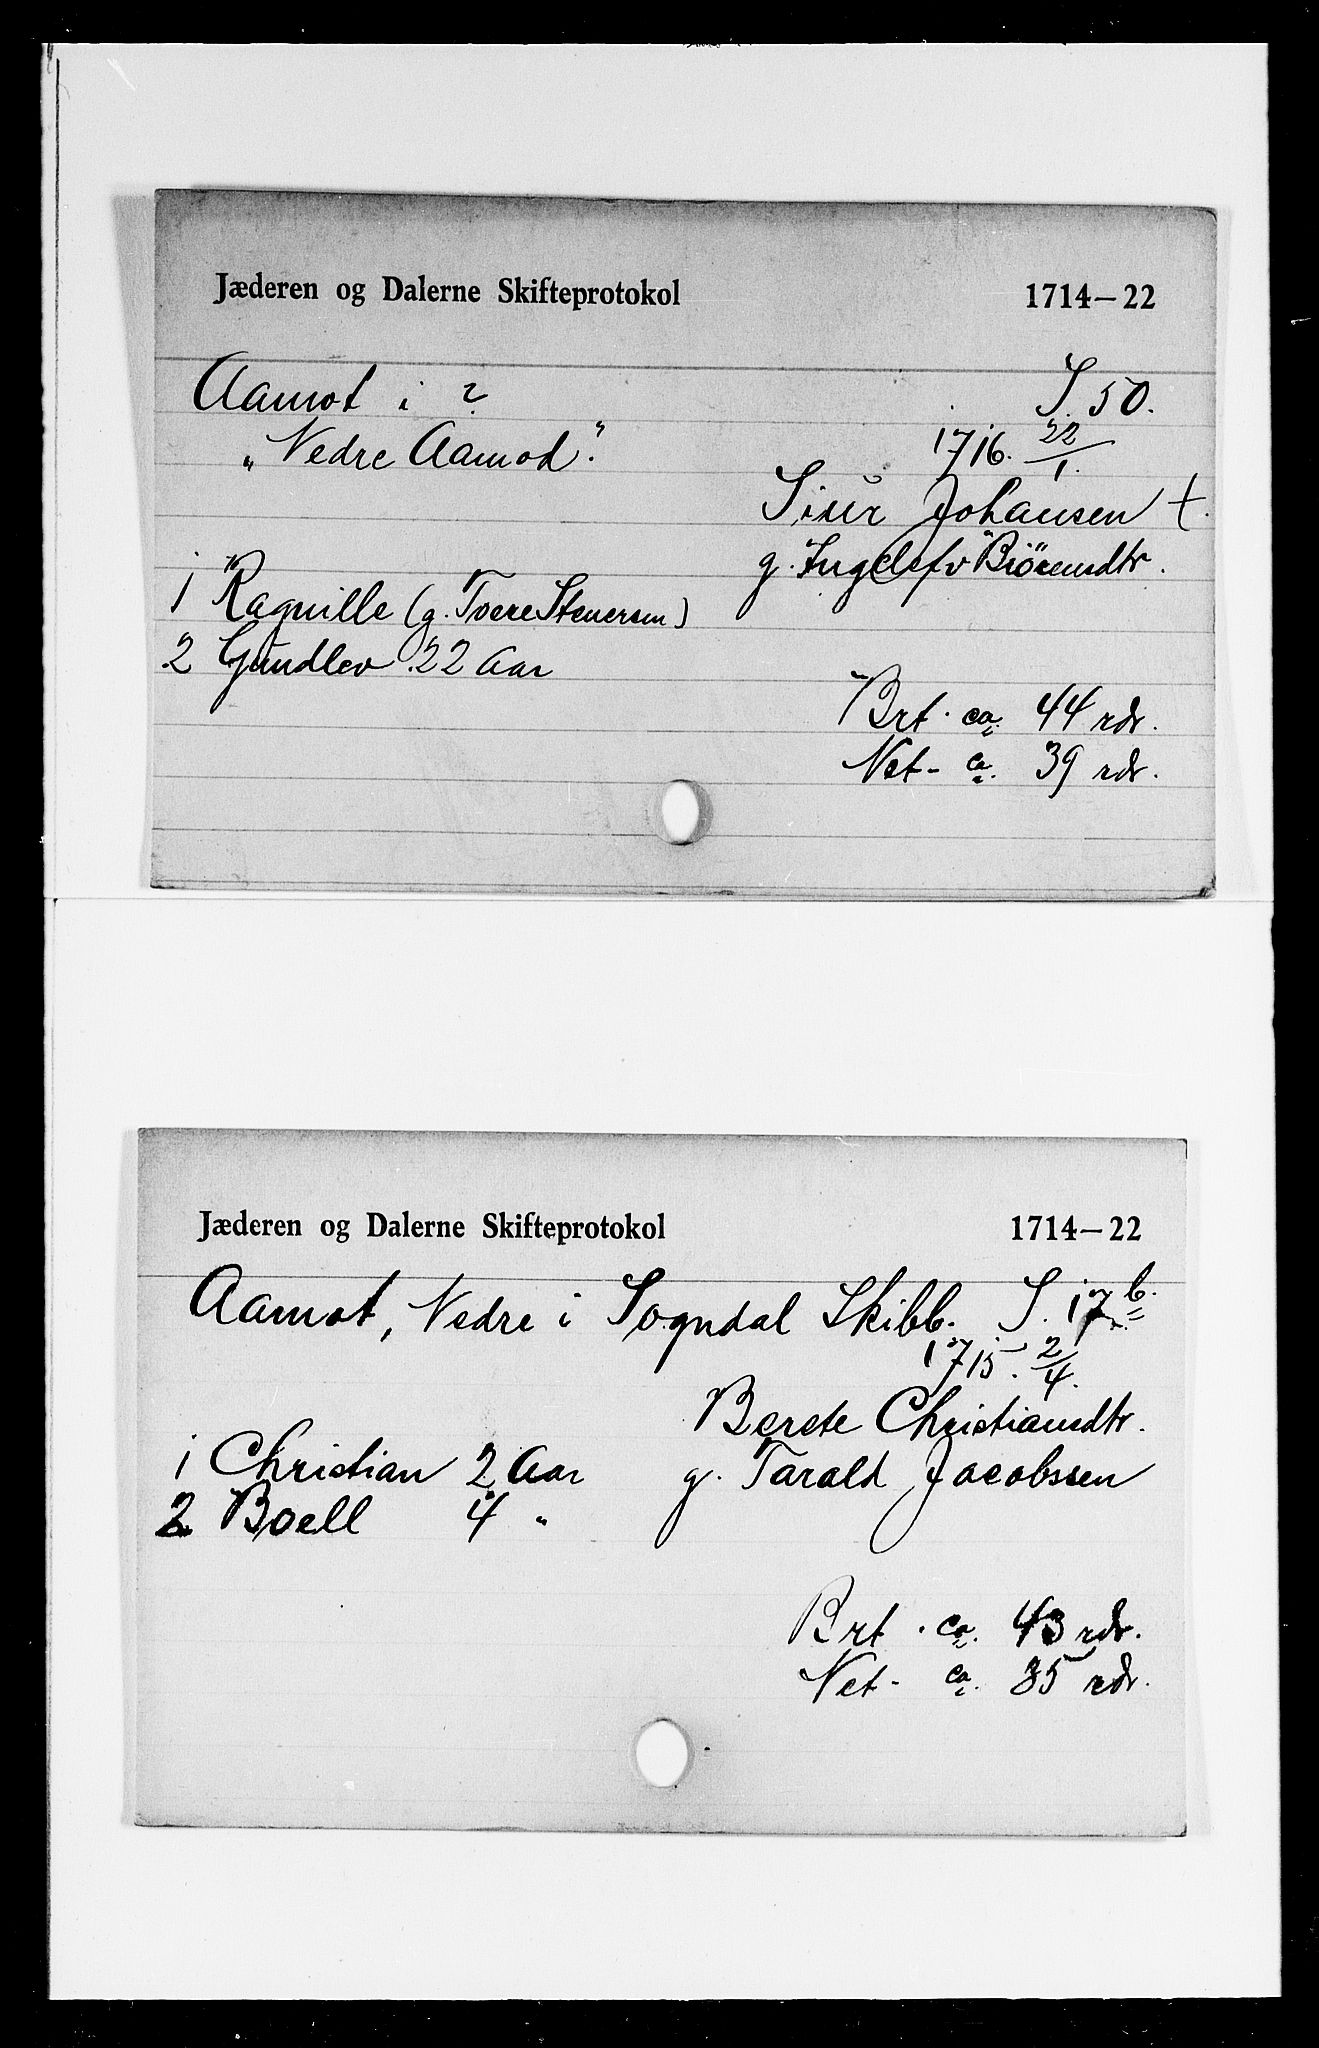 Jæderen og Dalerne Skifteprotokol 1714–22
Aamot i ? S. 50.
„Nedre Aamod." 1716. 22/1.
Siur Johansen †.
g. Ingelefv Biörendtr.
1 Ragnille (g. Tvere Stenersen)
2 Gundlev 22 Aar
Brt. ca. 44 rdr.
Net- ca. 39 rdr.
Jæderen og Dalerne Skifteprotokol 1714–22
Aamot, Nedre i Sogndal Skibb. S. 17 b.
1715. 2/4.
Berete Christiansdtr.
1 Christian 2 Aar g. Tarald Jacobssen
2 Boell 4 "
Brt. ca. 43 rdr.
Net- ca. 35 rdr.